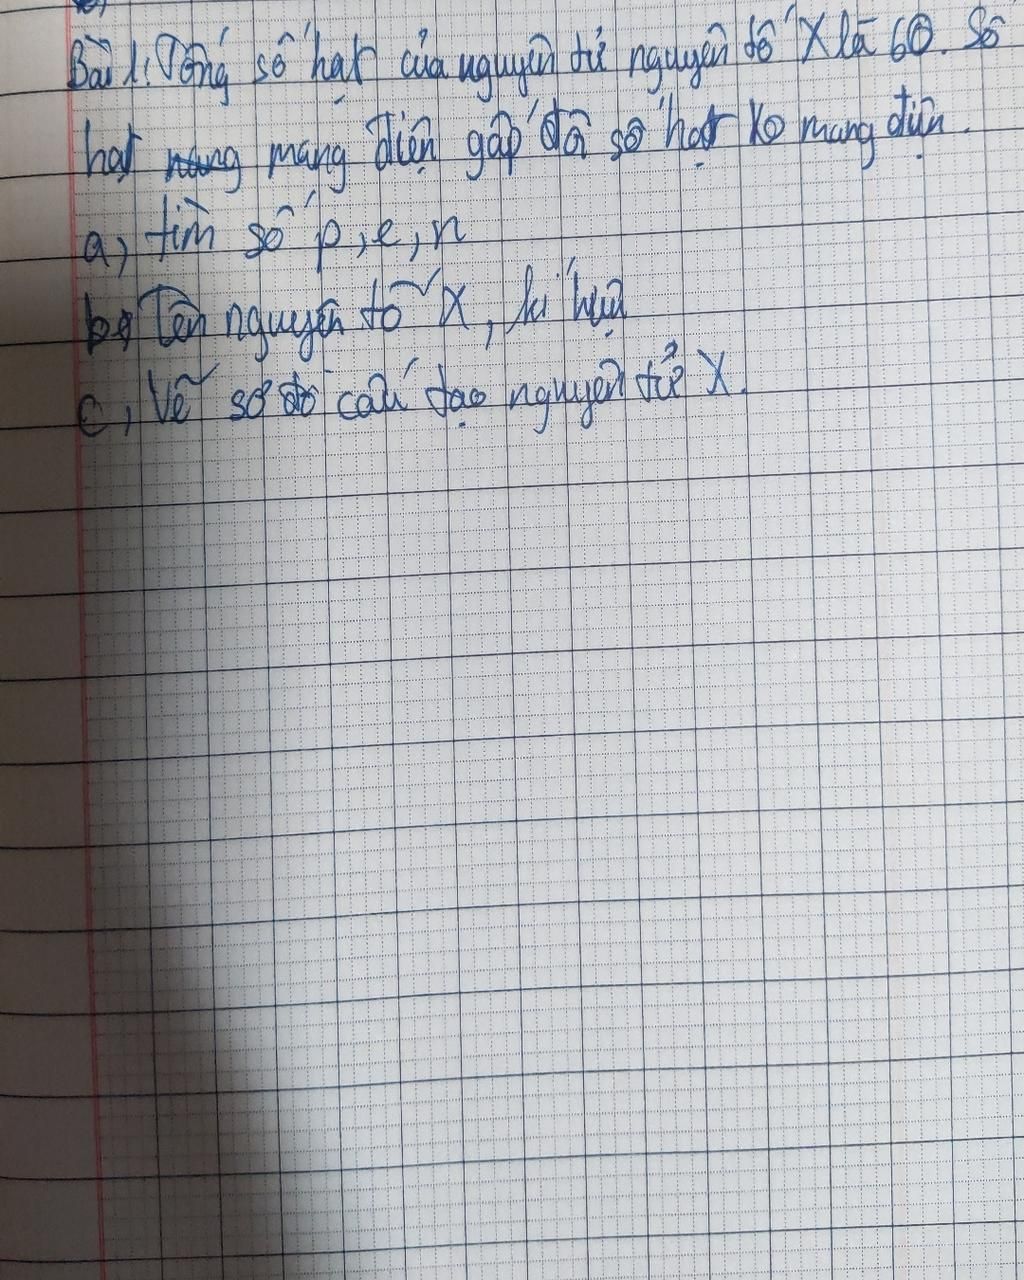 Bài 1: Tổng số hạt của nguyên tử nguyên tố X là 60. Số
hạt mang điện gấp đôi số hạt ko mang điện.
a, tìm số p, e, n
b, Tên nguyên tố X, kí hiệu
c, Vẽ sơ đồ cấu tạo nguyên tử X.